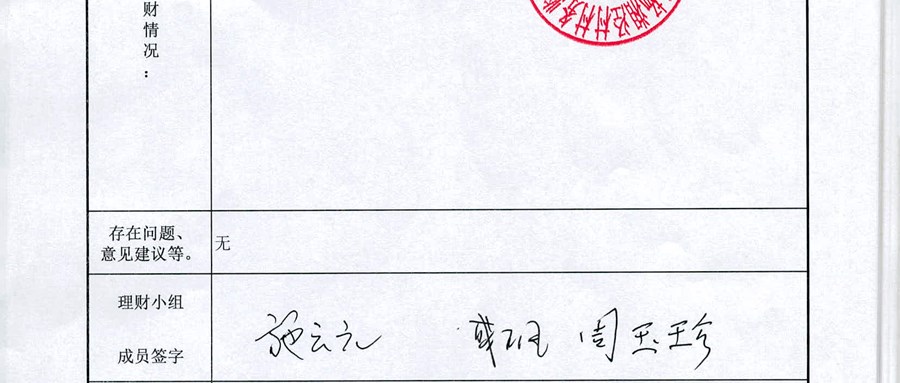 财情况：
存在问题、
意见建议等。
无
理财小组
成员签字
施云元 周玉珍